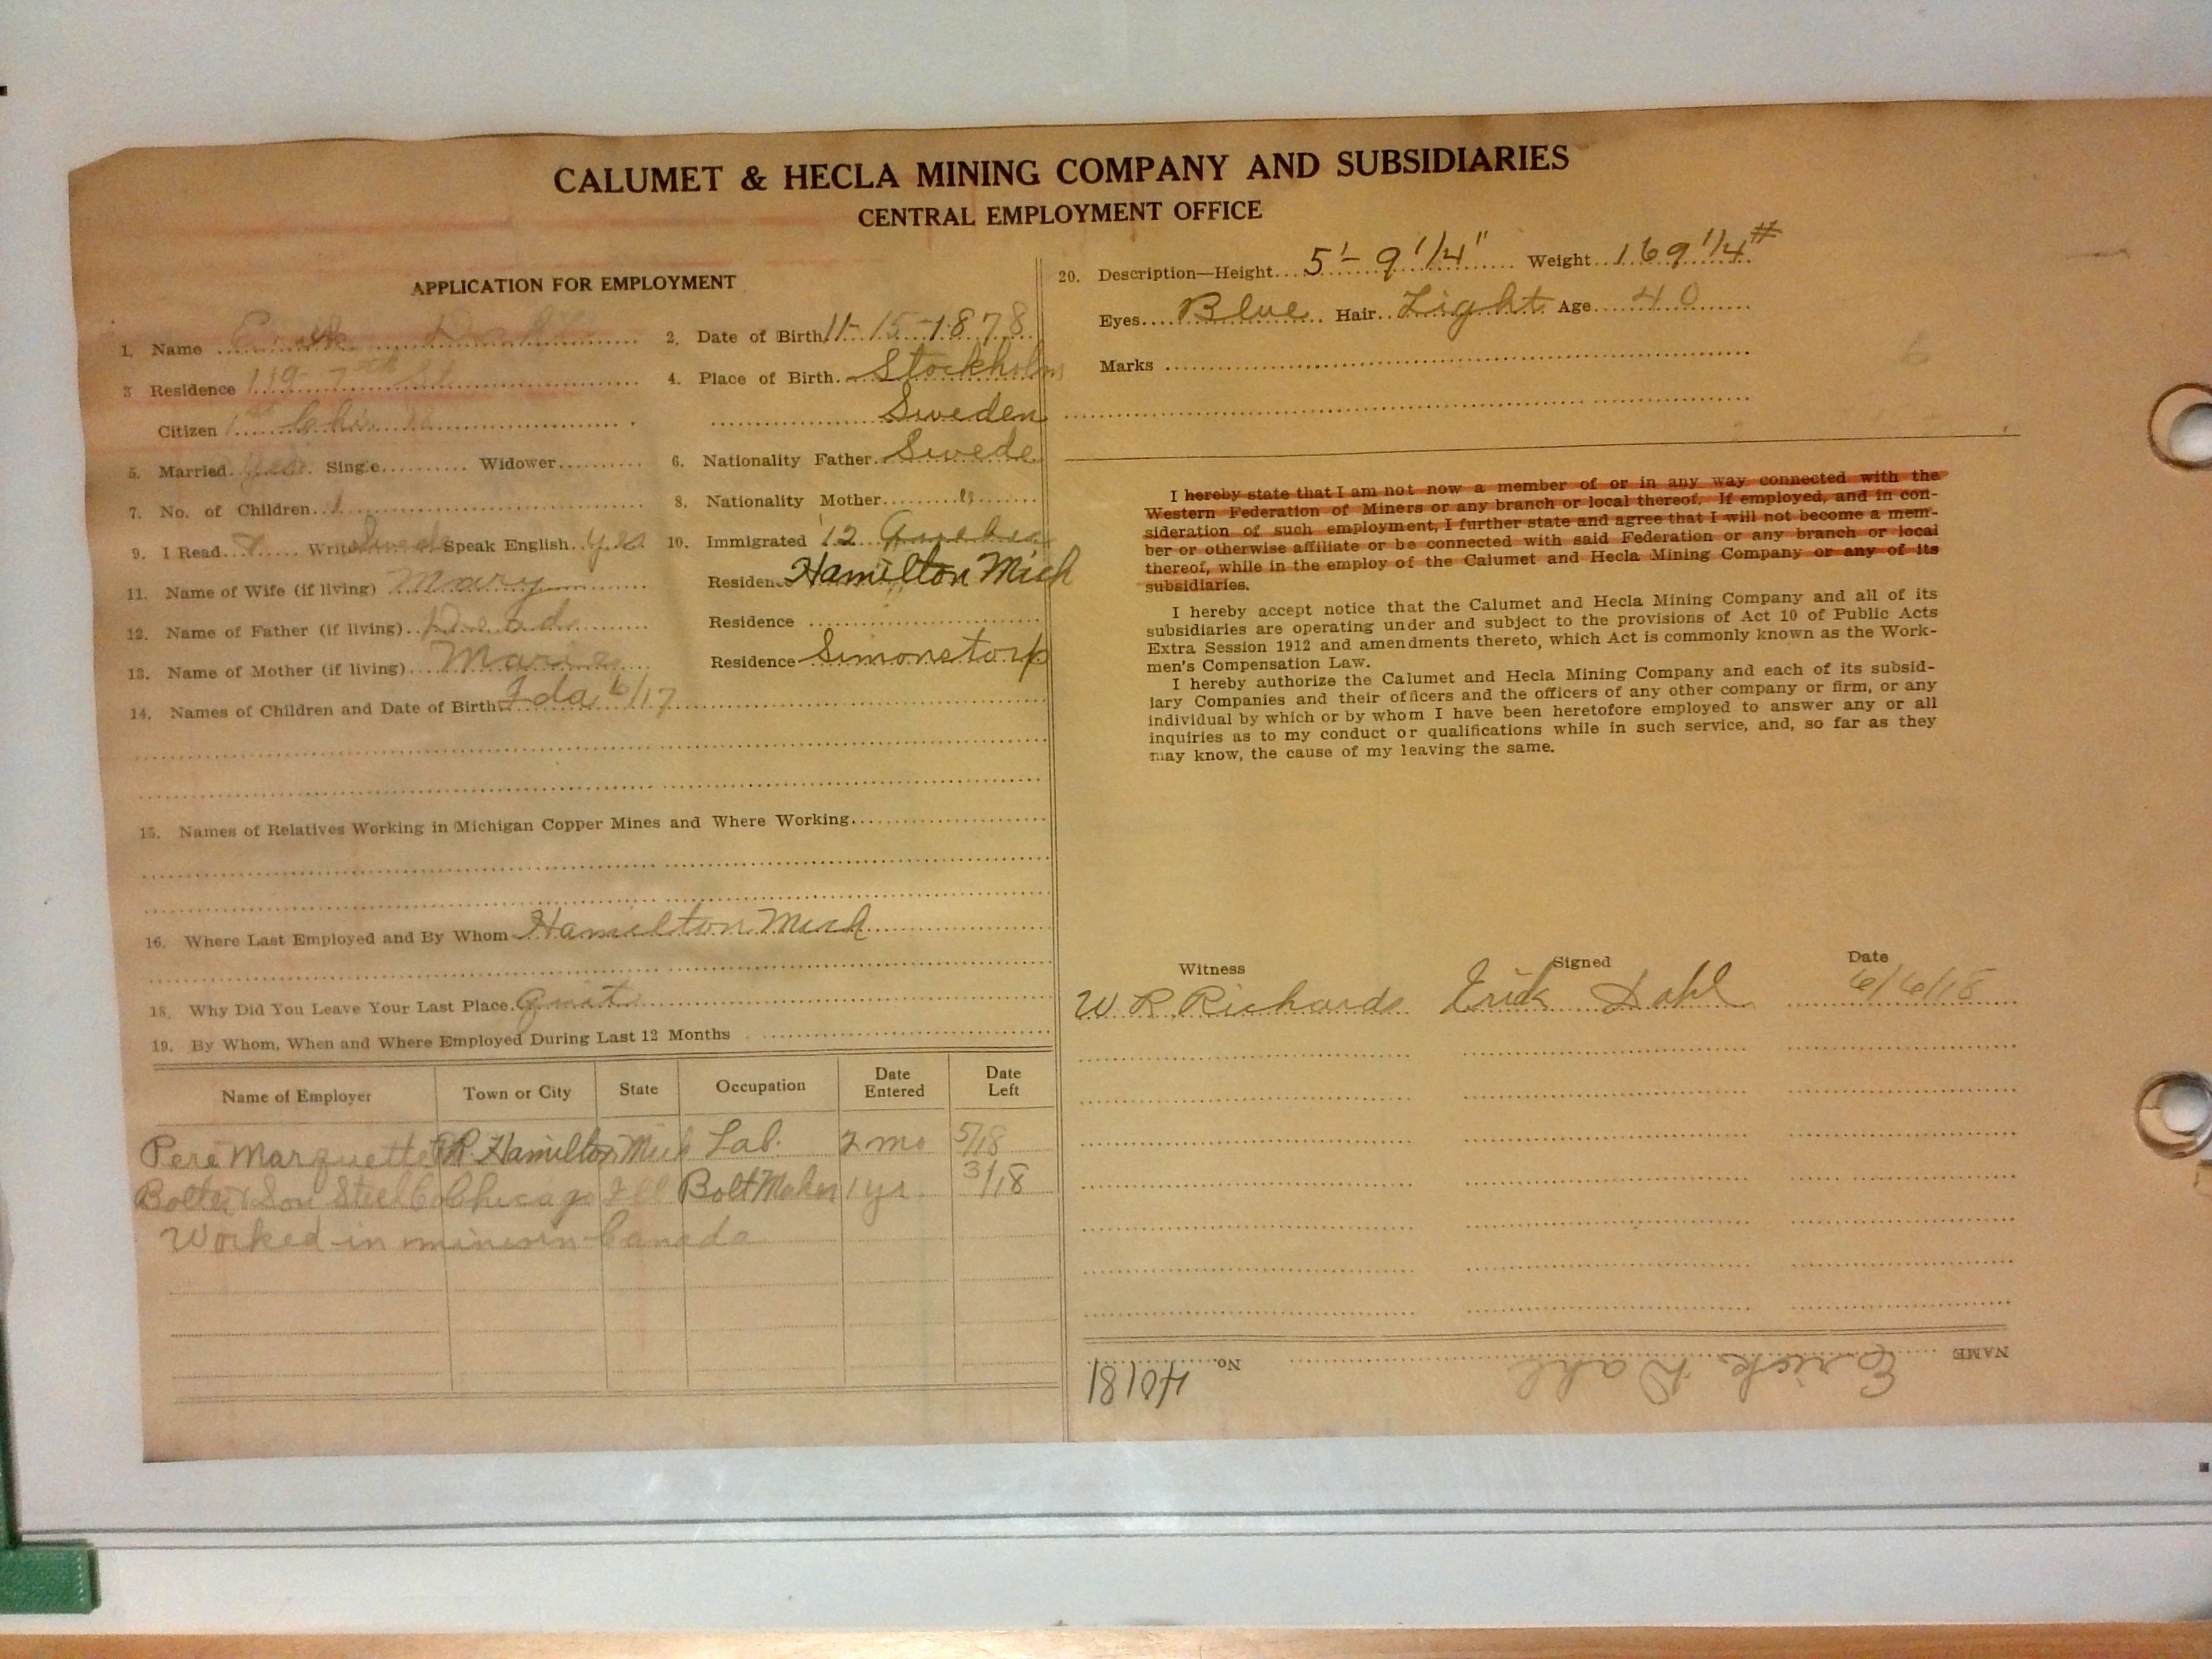 CALUMET & HECLA MINING COMPANY AND SUBSIDIARIES
CENTRAL EMPLOYMENT OFFICE
APPLICATION FOR EMPLOYMENT
1. Name Erick Dahl 2. Date of Birth 11-15-1878
3 Residence 119 7th St 4. Place of Birth Stockholm
Citizen 1st Sweden
5. Married yes Single Widower 6. Nationality Father Swede
7. No. of Children 1 8. Nationality Mother "
9. I Read Write Swede Speak English yes 10. Immigrated '12 Quebec
11. Name of Wife (if living) Mary Residence Hamilton Mich
12. Name of Father (if living) Dead Residence
13. Name of Mother (if living) Maria Residence Simonstorp
14. Names of Children and Date of Birth Ida 6/17
15. Names of Relatives Working in Michigan Copper Mines and Where Working
16. Where Last Employed and By Whom Hamilton Mich
18. Why Did You Leave Your Last Place quit
19. By Whom, When and Where Employed During Last 12 Months
Name of Employer Town or City State Occupation Date Entered Date Left
Pere Marquette RR Hamilton Mich Lab. 2 mo 5/18
& Son Steel Co Chicago Ill Bolt Maker 1 yr 3/18
Worked in mines in Canada
20. Description—Height 5'-9 1/4" Weight 169 1/4 #
Eyes Blue Hair Light Age 40
Marks
I hereby state that I am not now a member of or in any way connected with the
Western Federation of Miners or any branch or local thereof. If employed, and in con-
sideration of such employment, I further state and agree that I will not become a mem-
ber or otherwise affiliate or be connected with said Federation or any branch or local
thereof, while in the employ of the Calumet and Hecla Mining Company or any of its
subsidiaries.
I hereby accept notice that the Calumet and Hecla Mining Company and all of its
subsidiaries are operating under and subject to the provisions of Act 10 of Public Acts
Extra Session 1912 and amendments thereto, which Act is commonly known as the Work-
men's Compensation Law.
I hereby authorize the Calumet and Hecla Mining Company and each of its subsid-
iary Companies and their officers and the officers of any other company or firm, or any
individual by which or by whom I have been heretofore employed to answer any or all
inquiries as to my conduct or qualifications while in such service, and, so far as they
may know, the cause of my leaving the same.
Witness Signed Date
W R Richards Erick Dahl 6/6/18
NAME Erick Dahl No. 40181